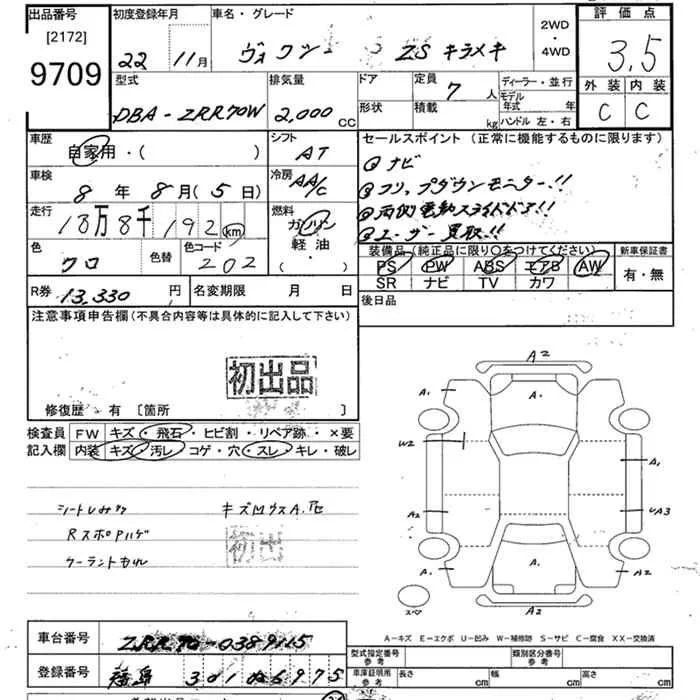 出品番号 初度登録年月 車名・グレード 2WD・4WD 評価点
[2172] 22 11月 ヴォクシー ZS キラメキ 3.5
9709 型式 排気量 ドア 定員 7人 ディーラー・並行 外装 内装
DBA-ZRR70W 2,000cc 形状 積載 kg モデル年式 年 C C
ハンドル 左・右
車歴 シフト セールスポイント (正常に機能するものに限ります)
自家用・( ) AT ①ナビ
車検 冷房 ②フリップダウンモニター!!
8年 8月(5日) AA/C ③両側電動スライドドア!!
走行 燃料 ④ユーザー買取!!
18万8千192km ガソリン 装備品 (純正品に限り〇をつけてください) 新車保証書
色 色替 色コード 軽油 PS PW ABS エアB AW 有・無
クロ 202 ( ・ ) SR ナビ TV カワ
R券 13,330円 名変期限 月 日 後日品
注意事項申告欄(不具合内容等は具体的に記入して下さい)
初出品
修復歴・有 〔箇所 〕
検査員 FW キズ・飛石・ヒビ割・リペア跡・×要
記入欄 内装 キズ・汚レ・コゲ・穴・スレ・キレ・破レ
A2
A.
A.
W2
A.
A2
UA3
A.
A.
A2
A2
スペ
キズ凹ウスA.
RスポPハゲ
初出
クーラントモレ
A-キズ E-エクボ U-凹み W-補修跡 S-サビ C-腐食 XX-交換済
車台番号 ZRR70-0389115 型式指定番号 参考 類別区分番号 参考
登録番号 301 ぬ6975 車庫証明用 参考 長さ cm 幅 cm 高さ cm